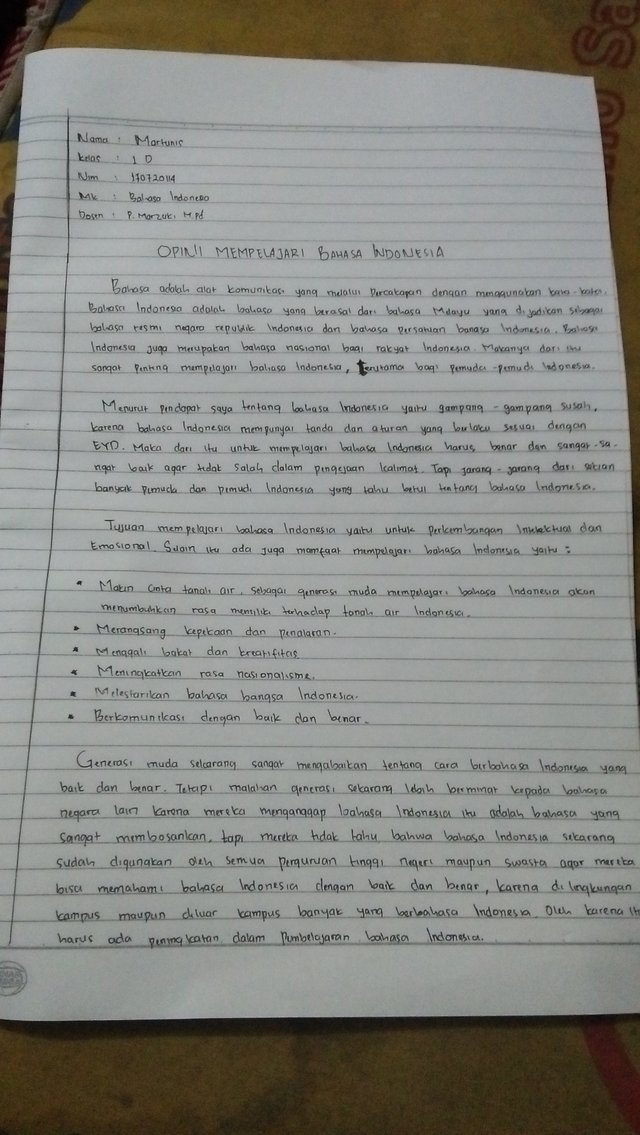 Nama : Martunis
Kelas : 1 D
Nim : 170720114
Mk : Bahasa Indonesia
Dosen : P. Marzuki M.Pd
OPINI MEMPELAJARI BAHASA INDONESIA
Bahasa adalah alat komunikasi yang melalui percakapan dengan menggunakan kata-kata.
Bahasa Indonesia adalah bahasa yang berasal dari bahasa Melayu yang dijadikan sebagai
bahasa resmi negara republik Indonesia dan bahasa persatuan bangsa Indonesia. Bahasa
Indonesia juga merupakan bahasa nasional bagi rakyat Indonesia. Makanya dari itu
sangat penting mempelajari bahasa Indonesia, terutama bagi pemuda-pemudi Indonesia.
Menurut pendapat saya tentang bahasa Indonesia yaitu gampang-gampang susah,
karena bahasa Indonesia mempunyai tanda dan aturan yang berlaku sesuai dengan
EYD. Maka dari itu untuk mempelajari bahasa Indonesia harus benar dan sangat-sa-
ngat baik agar tidak salah dalam pengejaan kalimat. Tapi jarang-jarang dari sekian
banyak pemuda dan pemudi Indonesia yang tahu betul tentang bahasa Indonesia.
Tujuan mempelajari bahasa Indonesia yaitu untuk perkembangan Intelektual dan
Emosional. Selain itu ada juga mamfaat mempelajari bahasa Indonesia yaitu :
* Makin cinta tanah air, sebagai generasi muda mempelajari bahasa Indonesia akan
menumbuhkan rasa memiliki terhadap tanah air Indonesia.
* Merangsang kepekaan dan penalaran.
* Menggali bakat dan kreatifitas
* Meningkatkan rasa nasionalisme.
* Melestarikan bahasa bangsa Indonesia.
* Berkomunikasi dengan baik dan benar.
Generasi muda sekarang sangat mengabaikan tentang cara berbahasa Indonesia yang
baik dan benar. Tetapi malahan generasi sekarang lebih berminat kepada bahasa
negara lain karena mereka menganggap bahasa Indonesia itu adalah bahasa yang
sangat membosankan, tapi mereka tidak tahu bahwa bahasa Indonesia sekarang
sudah digunakan oleh semua perguruan tinggi negeri maupun swasta agar mereka
bisa memahami bahasa Indonesia dengan baik dan benar, karena di lingkungan
kampus maupun diluar kampus banyak yang berbahasa Indonesia. Oleh karena itu
harus ada peningkatan dalam pembelajaran bahasa Indonesia.